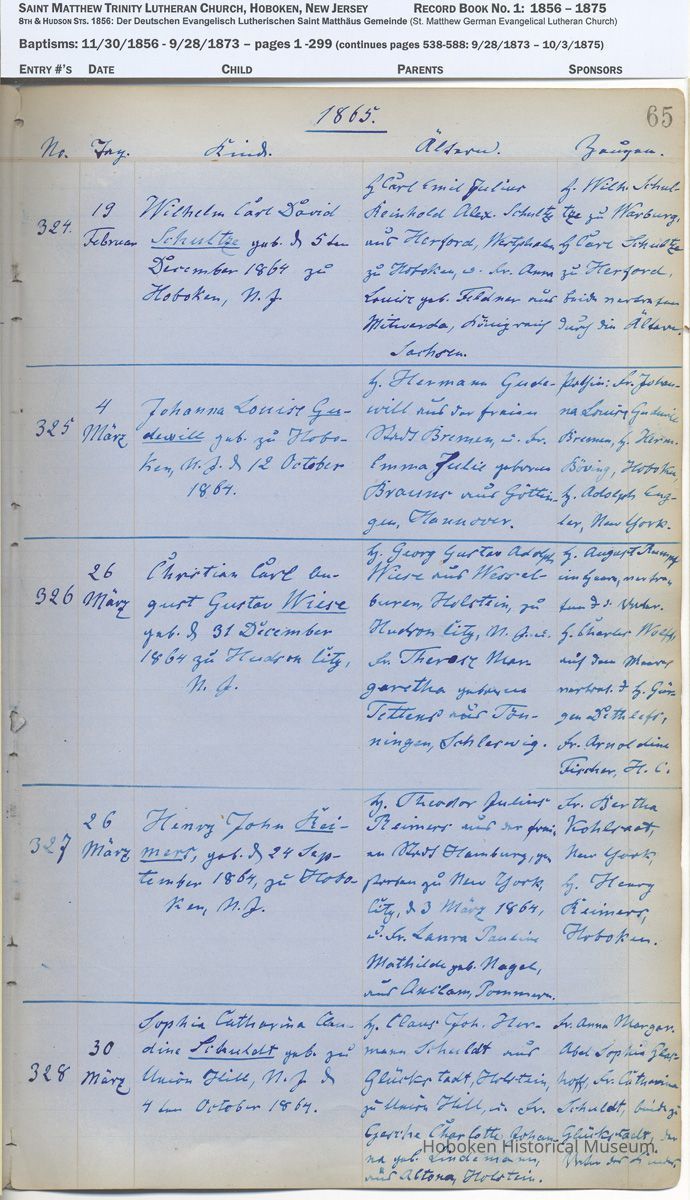 SAINT MATTHEW TRINITY LUTHERAN CHURCH, HOBOKEN, NEW JERSEY RECORD BOOK NO. 1: 1856 – 1875
8TH & HUDSON STS. 1856: Der Deutschen Evangelisch Lutherischen Saint Matthäus Gemeinde (St. Matthew German Evangelical Lutheran Church)
Baptisms: 11/30/1856 - 9/28/1873 – pages 1 -299 (continues pages 538-588: 9/28/1873 – 10/3/1875)
ENTRY #'S DATE CHILD PARENTS SPONSORS
1865. 65
No. Tag. Kind. Ältern. Zeugen.
324.
19
Februar
Wilhelm Carl David
Schultze geb. d 5ten
December 1864 zu
Hoboken, N. J.
H Carl Emil Julius
Reinhold Alex. Schultze
aus Herford, Westphalen
zu Hoboken, u. Fr. Anna
Louise geb. Feldner aus
Mitweida, Königreich
Sachsen.
H. Wilh. Schul-
tze zu Warburg,
H Carl Schultze
zu Herford,
beide vertreten
durch die Ältern.
325
4
März
Johanna Louise Gu-
dewill geb. zu Hobo-
ken, N. J. d 12 October
1864.
H. Hermann Gude-
will aus der freien
Stadt Bremen, u. Fr.
Emma Julie geborne
Brauns aus Göttin-
gen, Hannover.
Fr. Johan-
na Louise Gudewill
Bremen, H. Herm.
Böving, Hoboken,
H. Adolph Eng-
ler, New York.
326
26
März
Christian Carl Au-
gust Gustav Wiese
geb. d 31 December
1864 zu Hudson City,
N. J.
H. Georg Gustav Adolph
Wiese aus Wessel-
buren, Holstein, zu
Hudson City, N. J. u.
Fr. Therese Mar-
garetha geborene
Tettens aus Tön-
ningen, Schleswig.
H. August Rumpf
vertre-
ten d. d. Vater.
H. Charles Wolff,
auf dem Meere
vertret. d H. Jür-
gen Dethlefs,
Fr. Arnoldine
Fischer, H. C.
327
26
März
Henry John Rei-
mers, geb. d 24 Sep-
tember 1864, zu Hobo-
ken, N. J.
H. Theodor Julius
Reimers aus der frei-
en Stadt Hamburg, ge-
storben zu New York
City, d 3 März 1864,
u. Fr. Laura Pauline
Mathilde geb. Nagel,
aus Anclam, Pommern.
Fr. Bertha
Kohlsaat,
New York,
H. Henry
Reimers,
Hoboken.
328
30
März
Sophia Catharina Clau-
dine Schuldt geb. zu
Union Hill, N. J. d
4ten October 1864.
H. Claus Joh. Her-
mann Schuldt aus
Glückstadt, Holstein,
zu Union Hill, u. Fr.
Gesche Charlotte Johan-
na geb. Lindemann,
aus Altona, Holstein.
Fr. Anna Margar.
Abel Sophia
Fr. Catharina
Schuldt, beide zu
Glückstadt,
Hoboken Historical Museum.